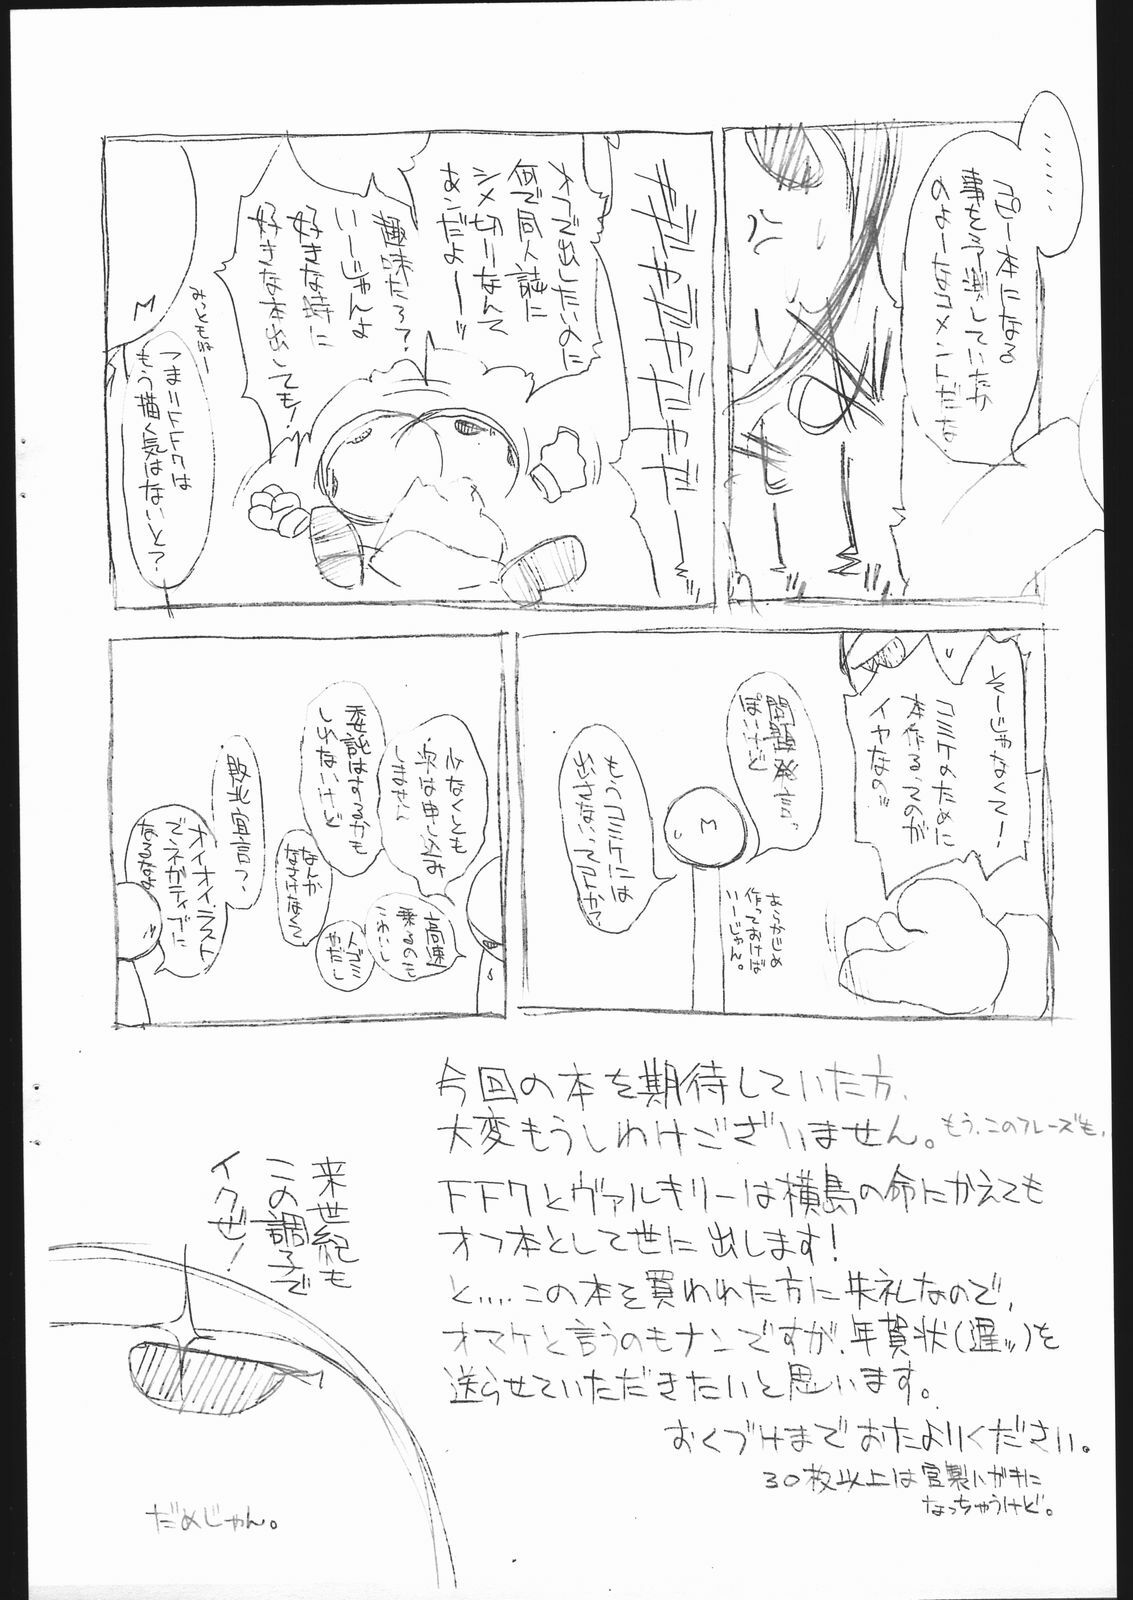 ‥‥‥
コピー本になる
事を予測していたか
のよーなコメントだな
ヤダヤダヤダヤダヤダヤー
オフで出したいのに
何で同人誌に
シメ切りなんて
あンだよーーッ
趣味だろ?
いーじゃんよ
好きな時に
好きな本出しても!
みっともねー
つまりFF7は
もう描く気はないと?
そーじゃなくてー
コミケのために
本作るってのが
イヤなの!!
問題発言っ
ぽいけど
もうコミケには
出さないってトカ?
あらかじめ
作っておけば
いーじゃん。
少なくとも
次は申し込み
しません
委託はするかも
しれないけど
高速
乗るのも
こわいし
人ゴミ
やだし
なんか
なさけなくて
敗北宣言?
オイオイ、ラスト
でネガティブに
なるなよ
今回の本を期待していた方、
大変もうしわけございません。もう、このフレーズも、
FF7とヴァルキリーは横島の命にかえても
オフ本として世に出します!
と‥‥この本を買われた方に失礼なので、
オマケと言うのもナンですが、年賀状(遅ッ)を
送らせていただきたいと思います。
おくづけまでおたよりください。
30枚以上は官製ハガキに
なっちゃうけど。
来世紀も
この調子で
イクぜ!
だめじゃん。